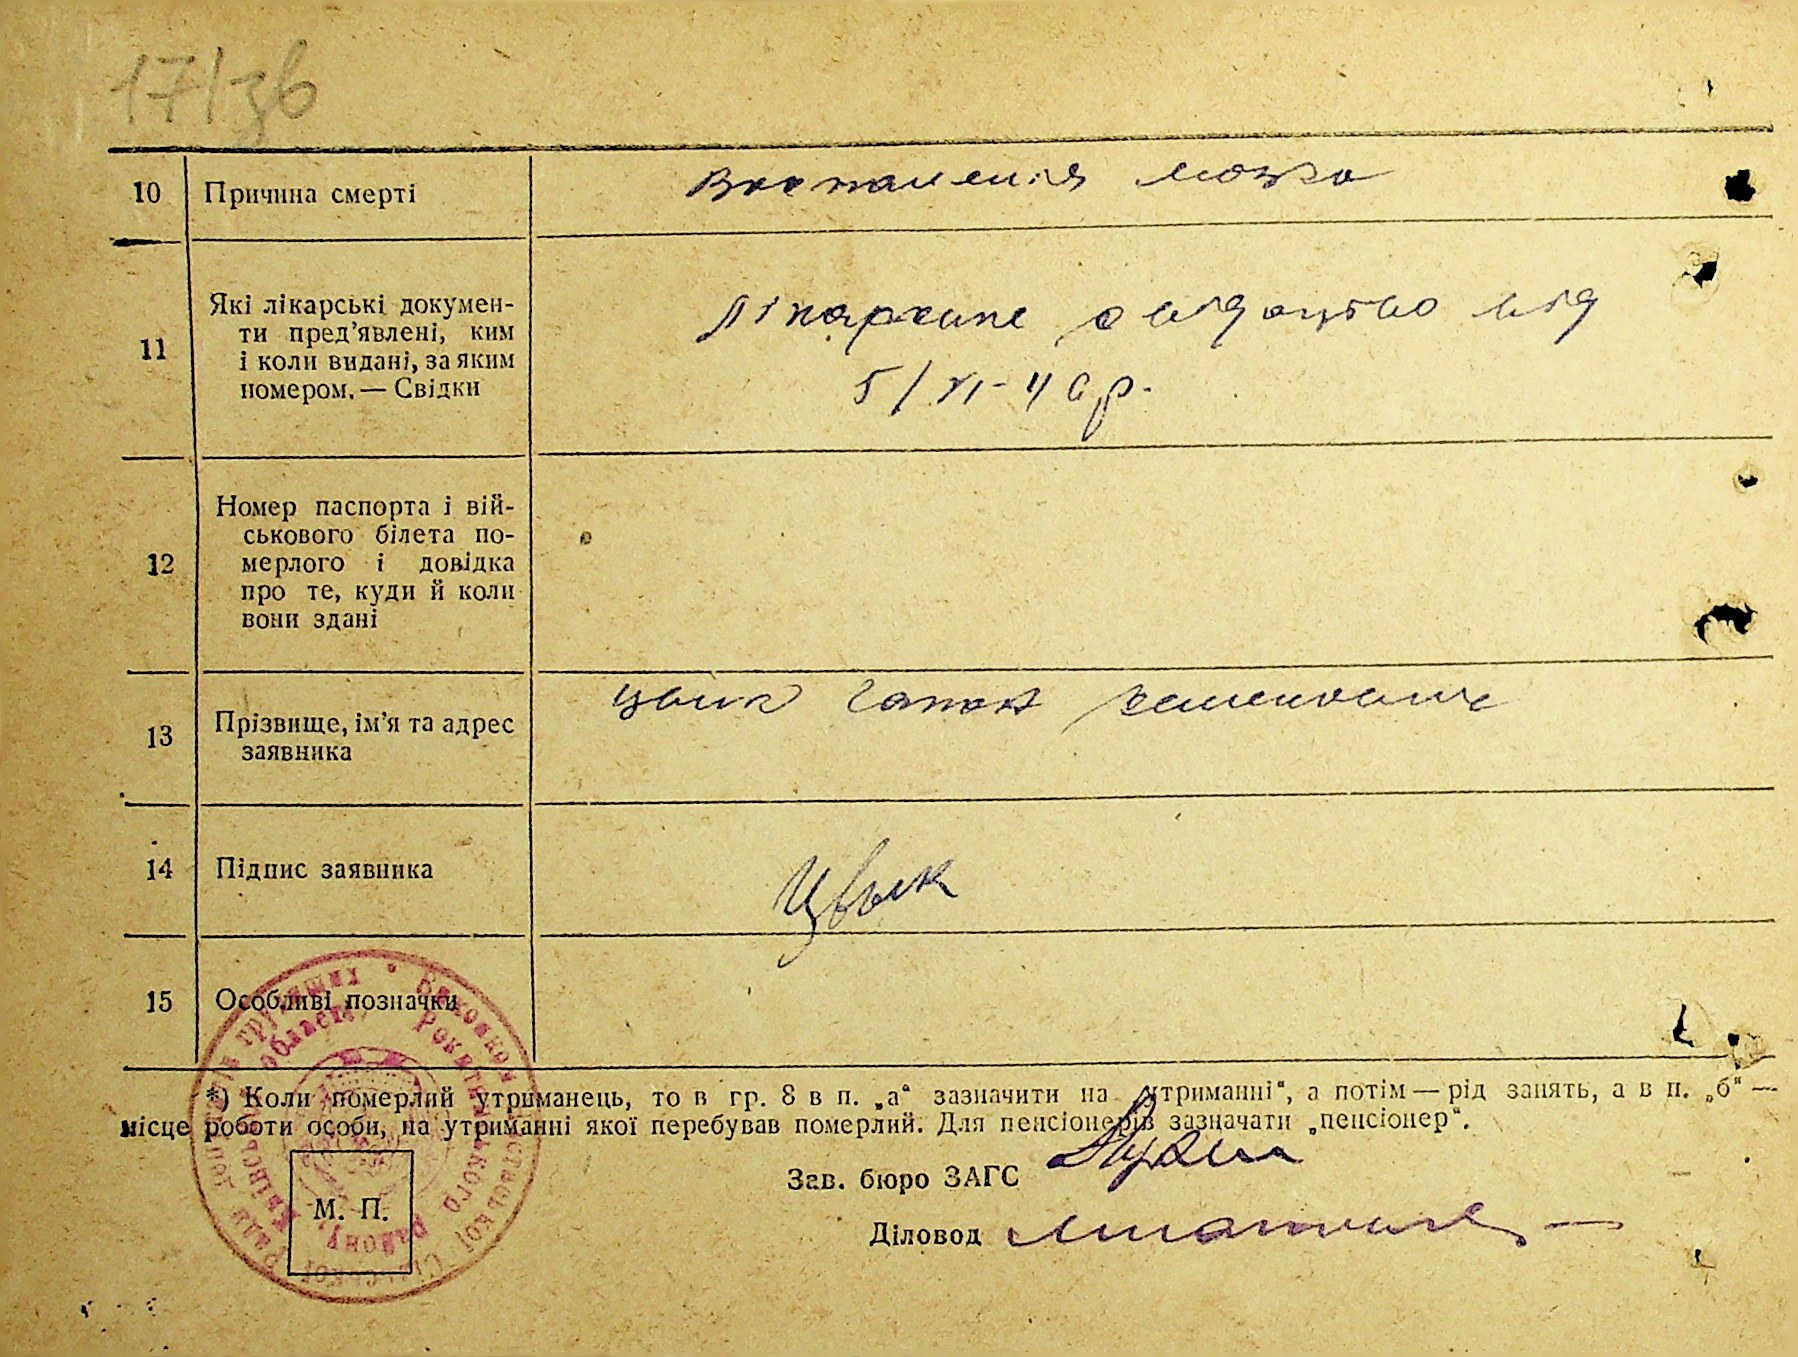 17/зв
10 Причина смерті Воспаления мозга
11 Які лікарські докумен-
ти пред'явлені, ким
і коли видані, за яким
номером. — Свідки
Лікарське свідоцтво від
5/VI-40р.
12 Номер паспорта і вій-
ськового білета по-
мерлого і довідка
про те, куди й коли
вони здані
13 Прізвище, ім'я та адрес
заявника
Цвик
14 Підпис заявника Цвык
15 Особливі позначки
*) Коли померлий утриманець, то в гр. 8 в п. „а“ зазначити на „утриманні“, а потім — рід занять, а в п. „б“ —
місце роботи особи, на утриманні якої перебував померлий. Для пенсіонерів зазначати „пенсіонер“.
Зав. бюро ЗАГС
Діловод
М. П.
Виконком Сільської Ради депутатів трудящих
Рокитнянського району, Київської області